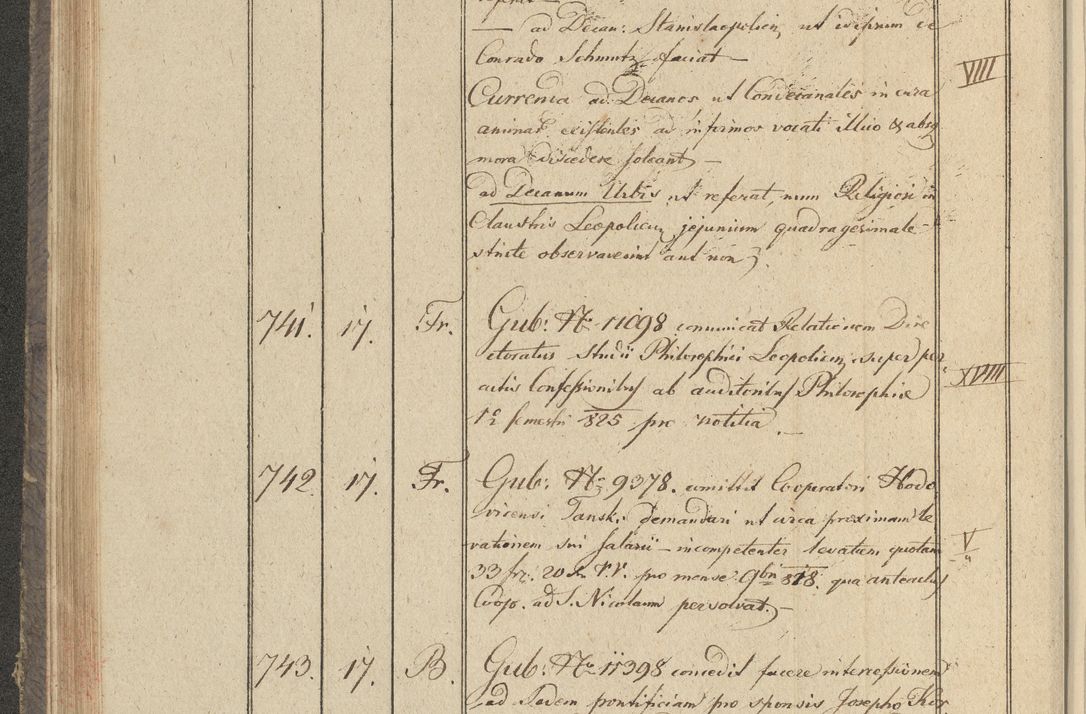 — ad Decan: Stanislaopolien, ut idipsum de
Conrado Schmutz faciat —
VIII
Currenda ad Decanos ut Condecanales in cura
animar. existentes ad infirmos vocati illico & absq
mora discedere soleant —
ad Decanum Urbis ut referat, num Religiosi in
Claustris Leopolien, jejunium quadragesimale
stricte observaverint aut non.
741. 17. Fr. Gub: Nr 11098 comunicat Relationem Dire
ctoratus Studii Philosophici Leopolien, super per
actis Confessionibus ab auditoribus Philosophiæ
XVIII
1i semestri 825 pro notitia —
742. 17. Fr. Gub: Nr 9378. comittit Cooperatori Hodo
vicensi Tanski demandari ut circa proximam le
vationem sui salarii — incompetenter levatum quotam
V
9
33 fr. 20 xr V.V. pro mense 9bri 818. qua anteactus
Coop. ad S. Nicolaum persolvat. —
743. 17. B. Gub: Nr 11398 concedit facere intercessionem
ad Sedem pontificiam pro sponsis Josepho Kor